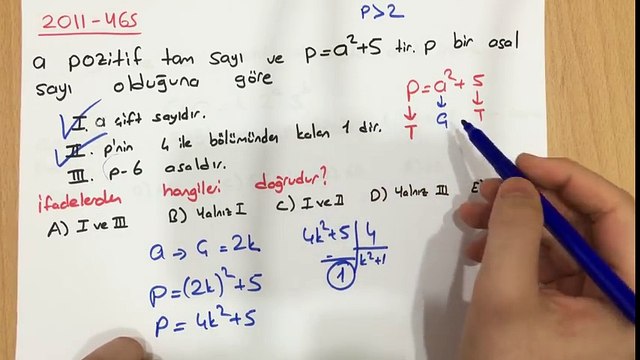 2011-YGS
P>2
a pozitif tam sayı ve p=a²+5 tir. p bir asal
sayı olduğuna göre
I. a çift sayıdır.
II. p'nin 4 ile bölümünden kalan 1 dir.
III. p-6 asaldır.
ifadelerden hangileri doğrudur?
A) I ve III B) Yalnız I C) I ve II D) Yalnız III E)
P=a²+5
T Ç T
a → Ç = 2k
P=(2k)²+5
P=4k²+5
4k²+5 | 4
k²+1
1